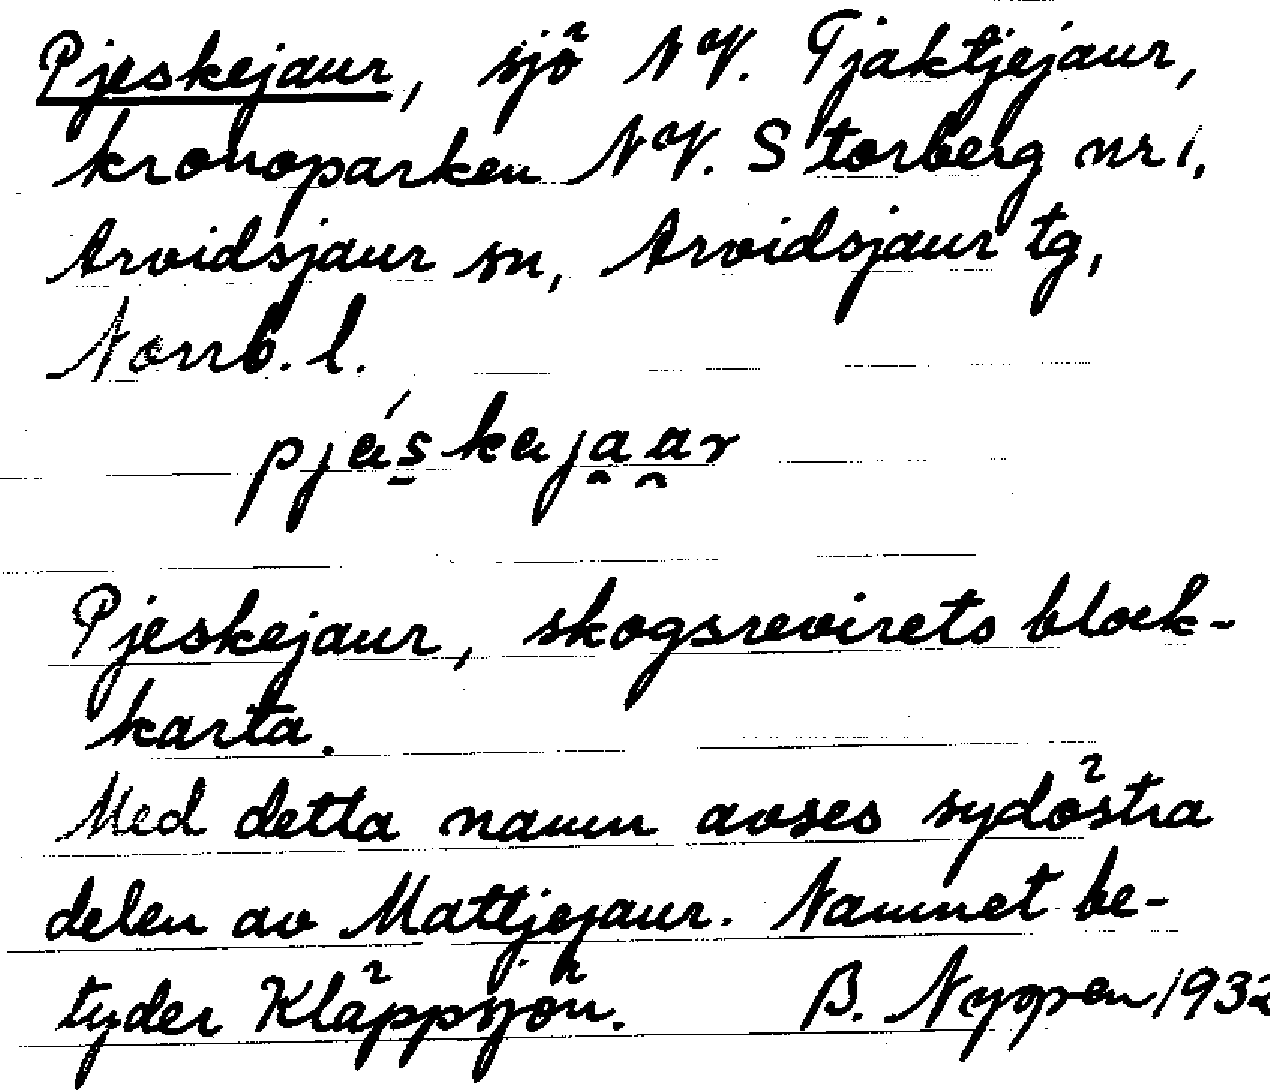 Pjeskejaur, sjö NV. Tjaktjejaur,
kronoparken NV. Storberg nr 1,
Arvidsjaur sn, Arvidsjaur tg,
Norrb. l.
pjéskajaar
Pjeskejaur, skogsrevirets block-
karta.
Med detta namn avses sydöstra
delen av Mattjejaur. Namnet be-
tyder Kläppsjön. B. Nygren 1932